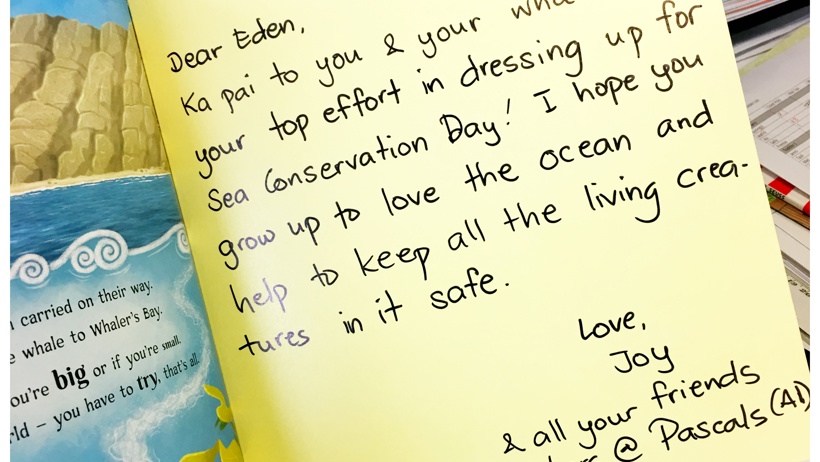 Dear Eden,
Ka pai to you & your
your top effort in dressing up for
Sea Conservation Day! I hope you
grow up to love the ocean and
help to keep all the living crea-
tures in it safe.
Love,
Joy
& all your friends
@ Pascals (A1)
carried on their way.
whale to Whaler's Bay.
you're big or if you're small.
– you have to try, that's all.